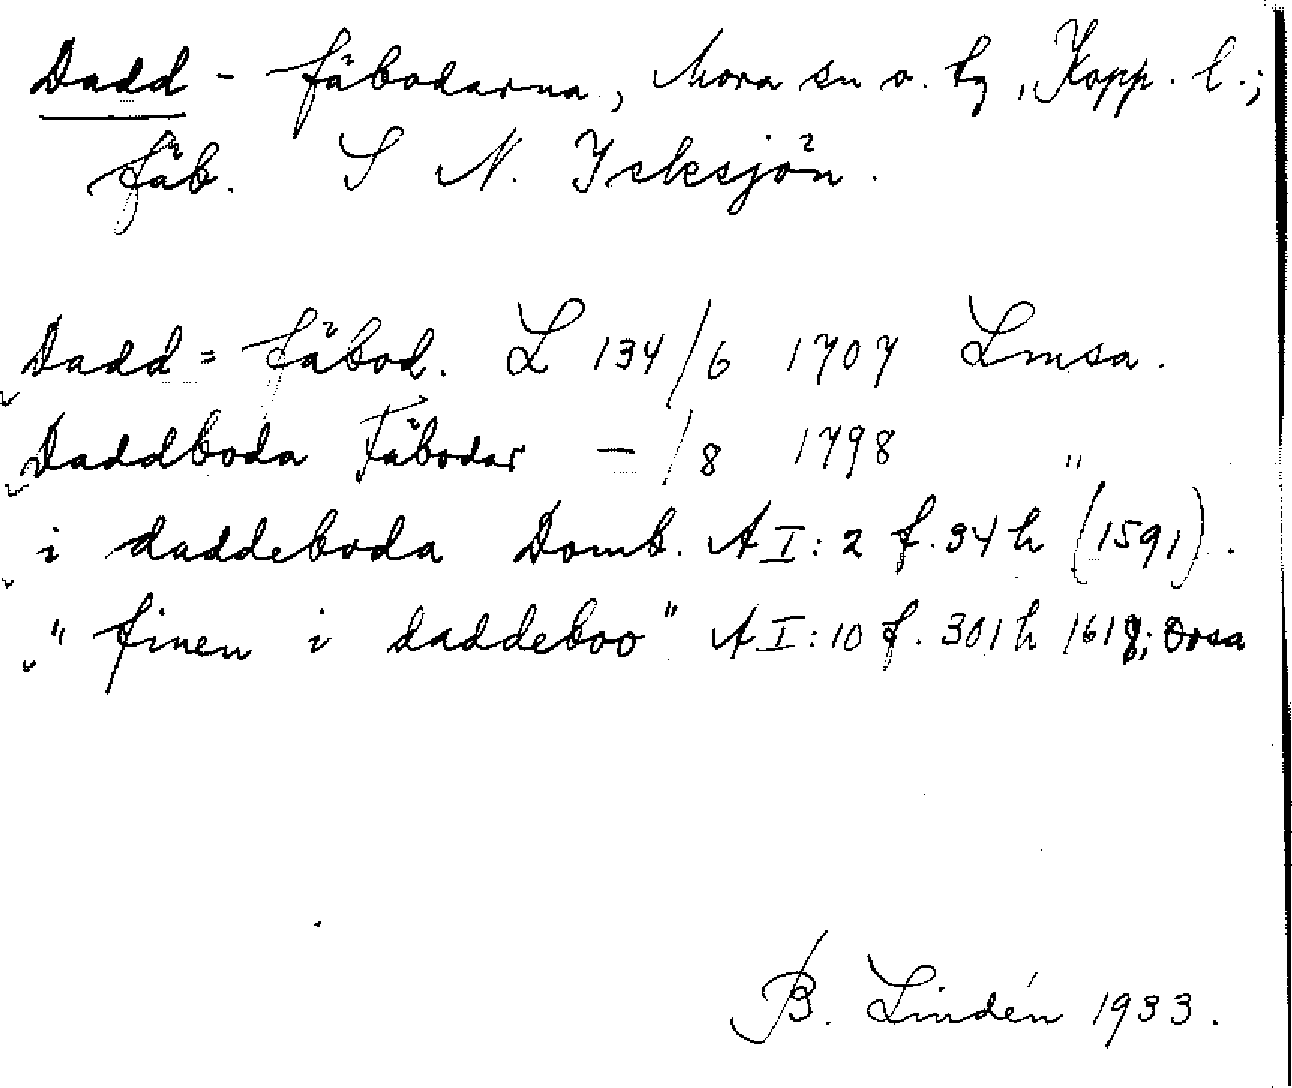 Dadd - fäbodarna, Mora sn o. tg, Kopp. l.;
fäb. S N. Isksjön.
Dadd = fäbod. L 134/6 1707 Lmsa.
Daddboda Fäbodar — /8 1798 "
i daddeboda Domb. A I:2 f. 34 h (1591).
" finen i daddeboo" A I:10 f. 301 h 1618; Orsa
B. Lindén 1933.